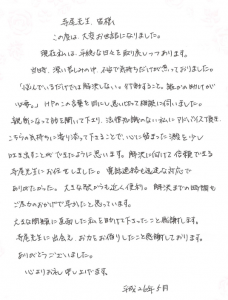 寺尾先生、皆様へ
この度は、大変お世話になりました。
現在私は、平穏な日々を取り戻しつつあります。
当時、深い悲しみの中、不安で気持ちだけが焦っておりました。
「悩んでいるだけでは解決しない。行動すること。誰かの助けが
必要。」HPのこの言葉を目にし思い切って相談に伺いました。
親身になって話を聞いて下さり、法律知識のない私にアドバイスして頂き、
こちらの気持ちに寄り添って下さることで、心に留まった涙を少し
吐き出すことができたように思います。解決に向けて信頼できる
寺尾先生にお任せしました。電話連絡も迅速な対応で
ありがたかった。大きな駅からも近く便利。解決までの時間も
ご尽力のおかげで早かったと思っています。
大きな問題に直面した私を助けて下さったこと感謝します。
寺尾先生に出会え、お力をお借りしたこと感謝しております。
ありがとうございました。
心よりお礼申し上げます。
平成26年5月